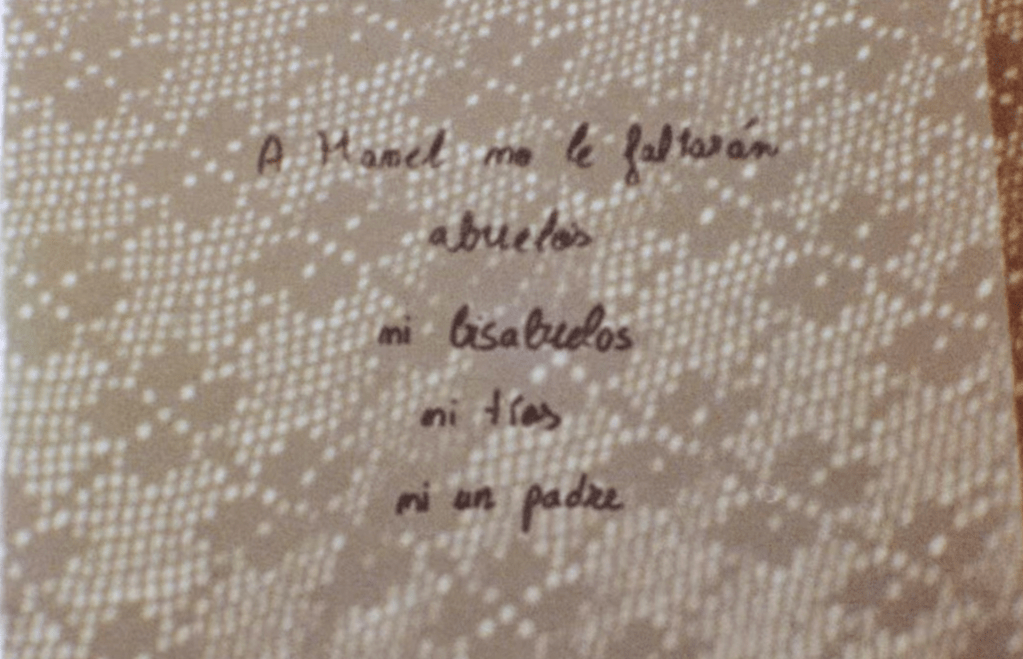 A Manel no le faltarán
abuelos
ni bisabuelos
ni tías
ni un padre